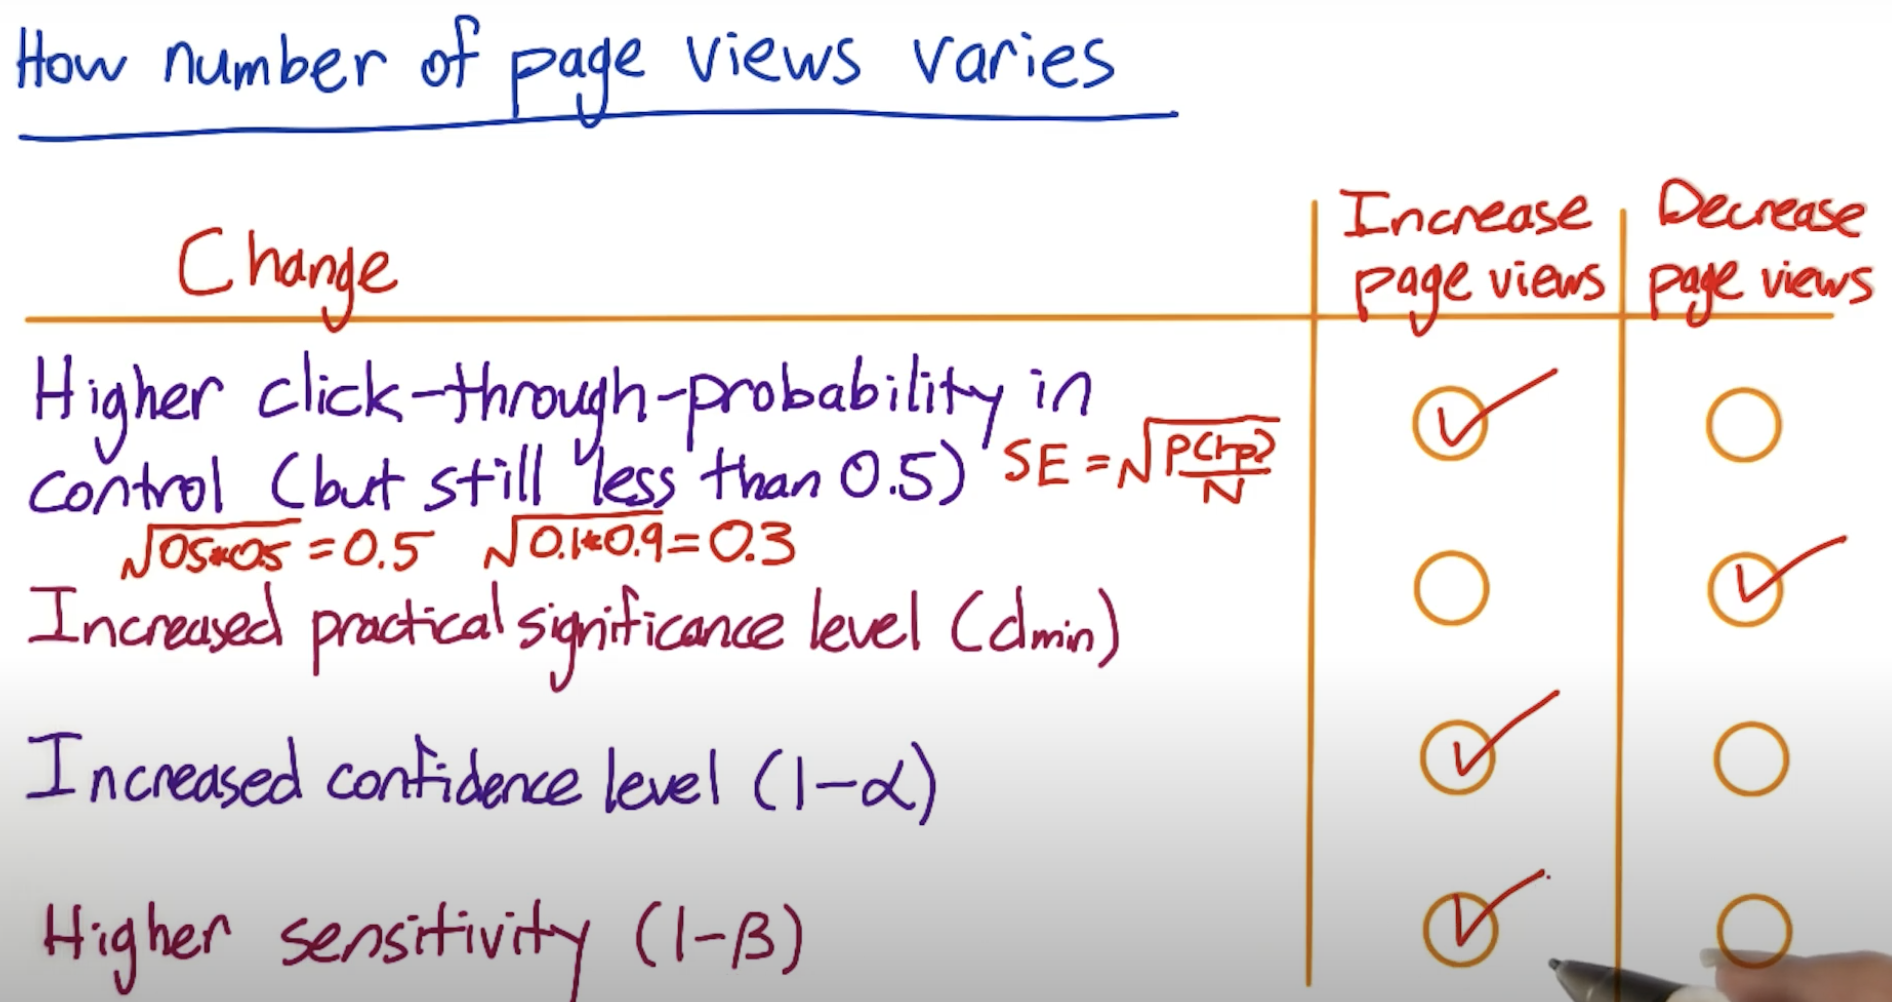 How number of page views varies
Change
Increase page views
Decrease page views
Higher click-through-probability in
control (but still less than 0.5)
SE = √P(1-p)/N
√0.5*0.5 = 0.5 √0.1*0.9 = 0.3
Increased practical significance level (dmin)
Increased confidence level (1-α)
Higher sensitivity (1-β)